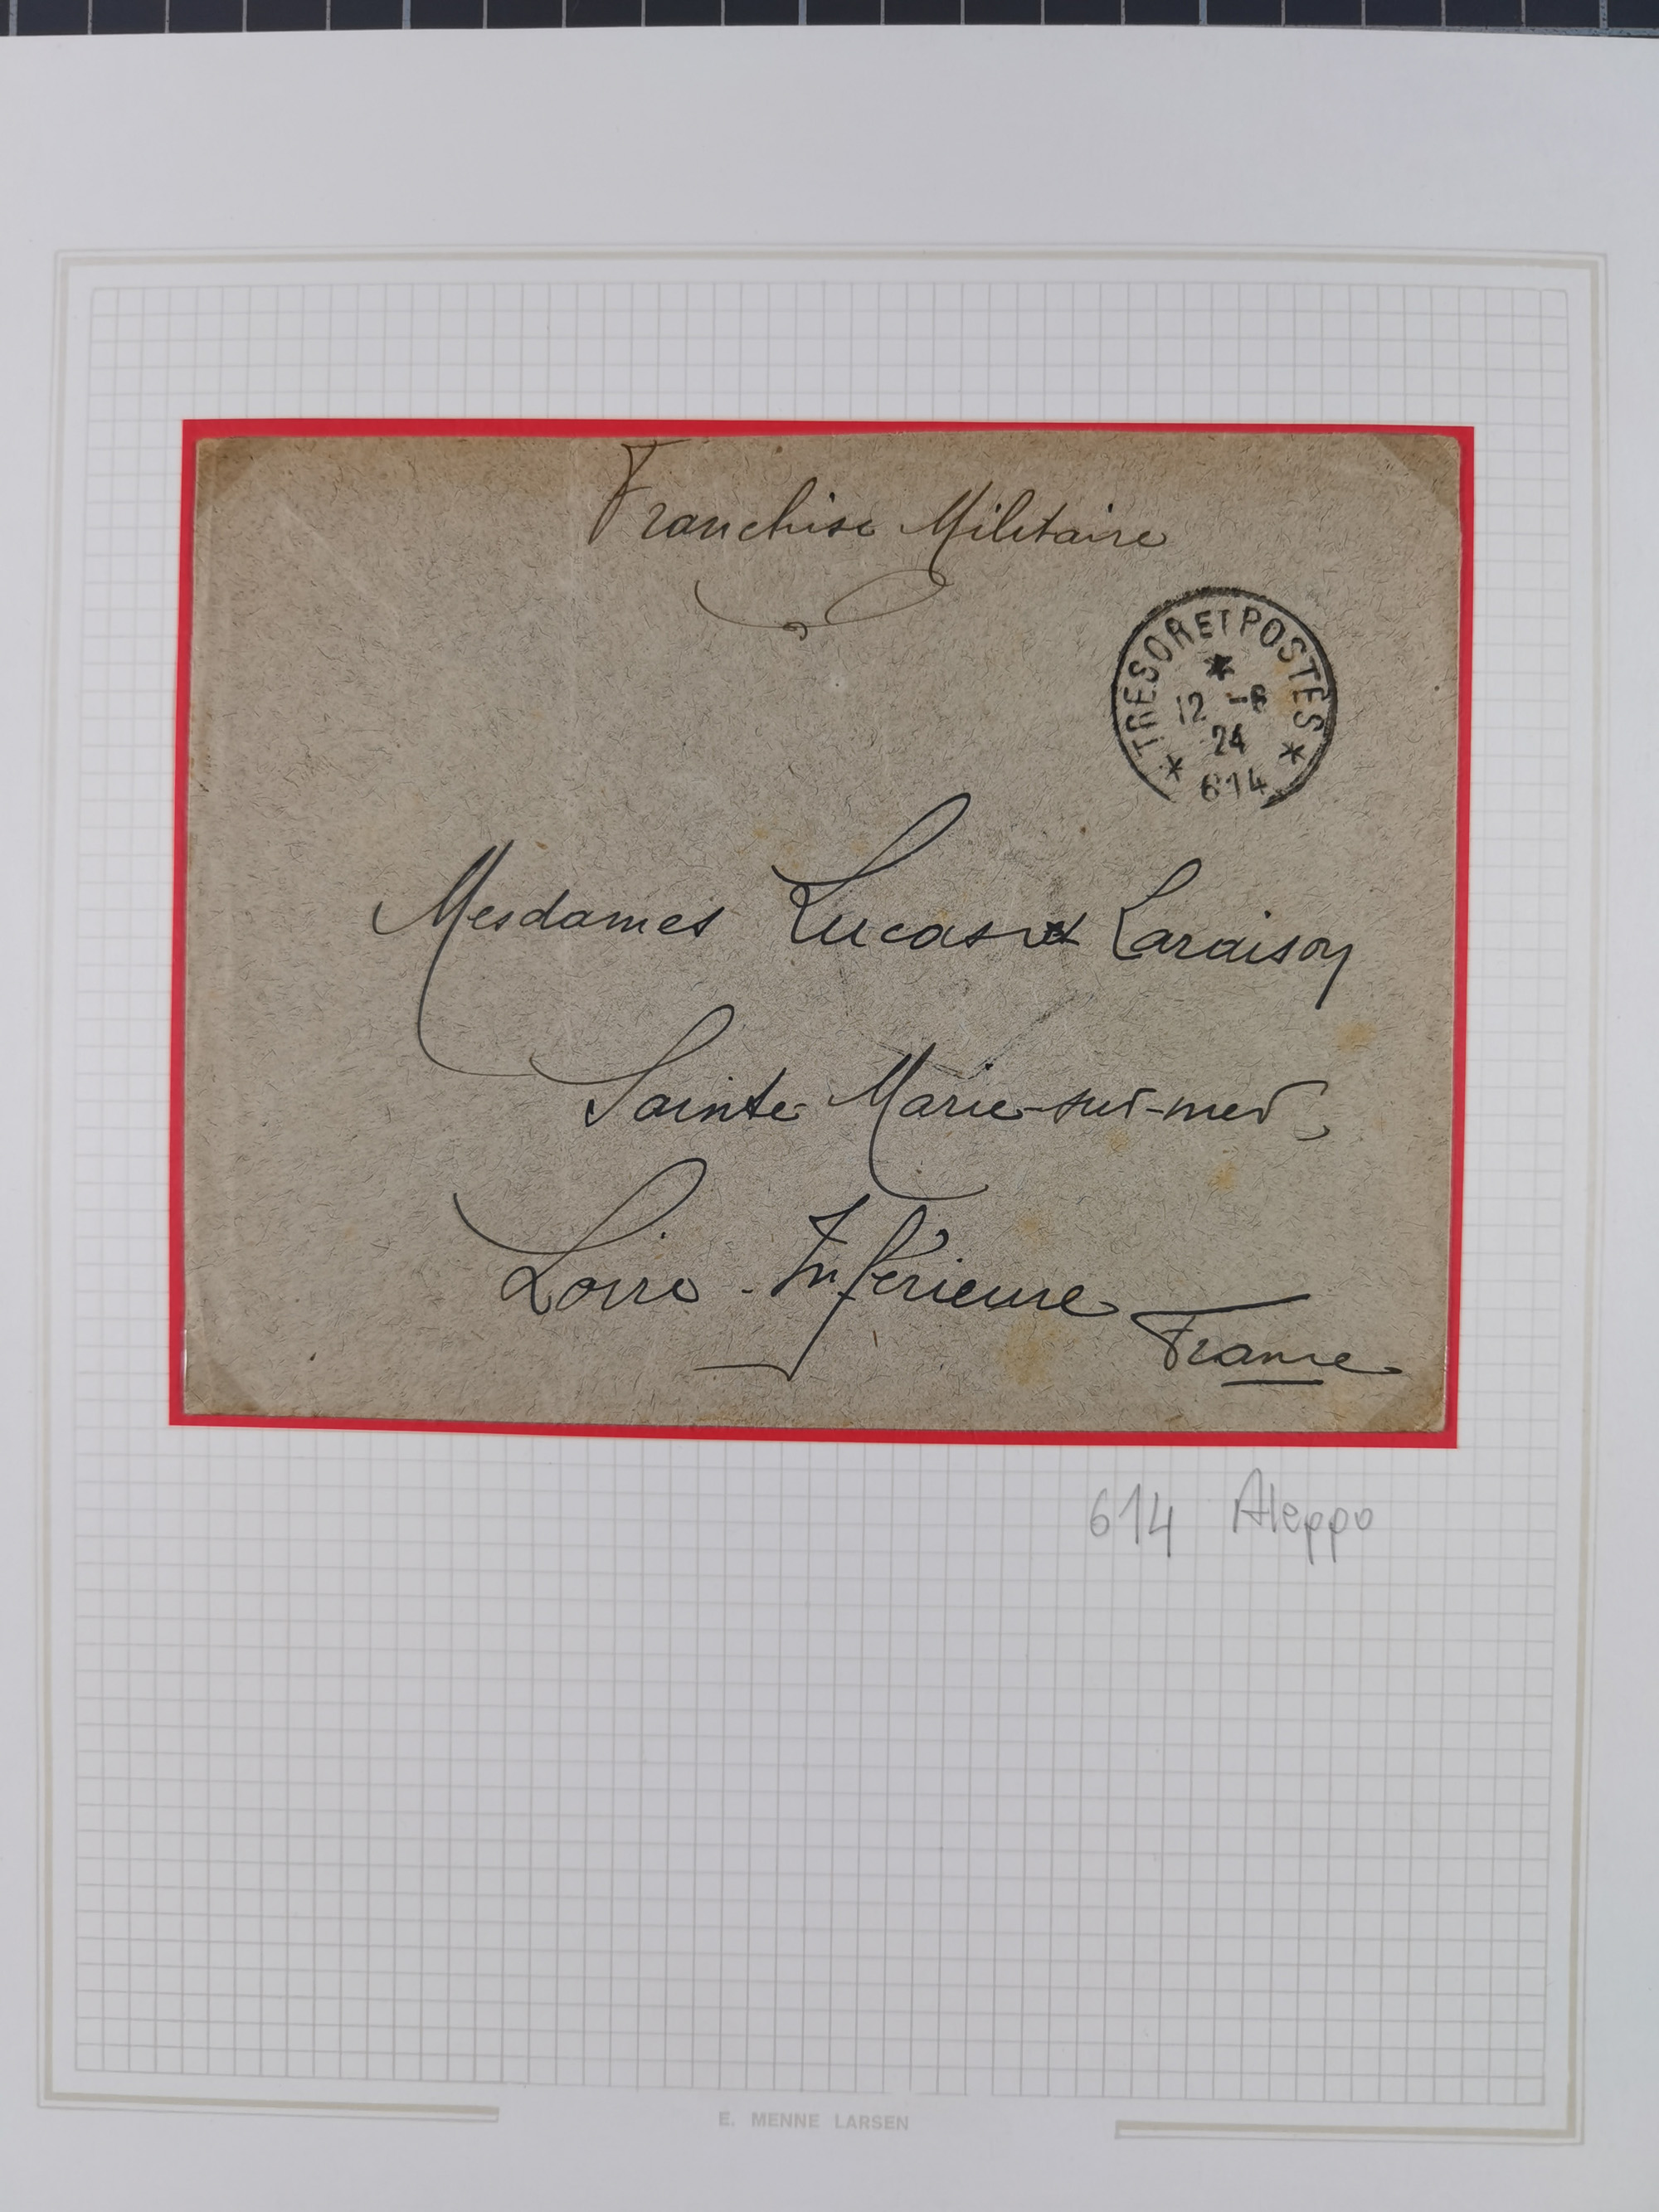 Franchise Militaire
TRESOR ET POSTES
12 -6
24
614
Mesdames Lucas et Laraison
Sainte Marie-sur-mer
Loire-Inférieure
France
614 Aleppo
E. MENNE LARSEN